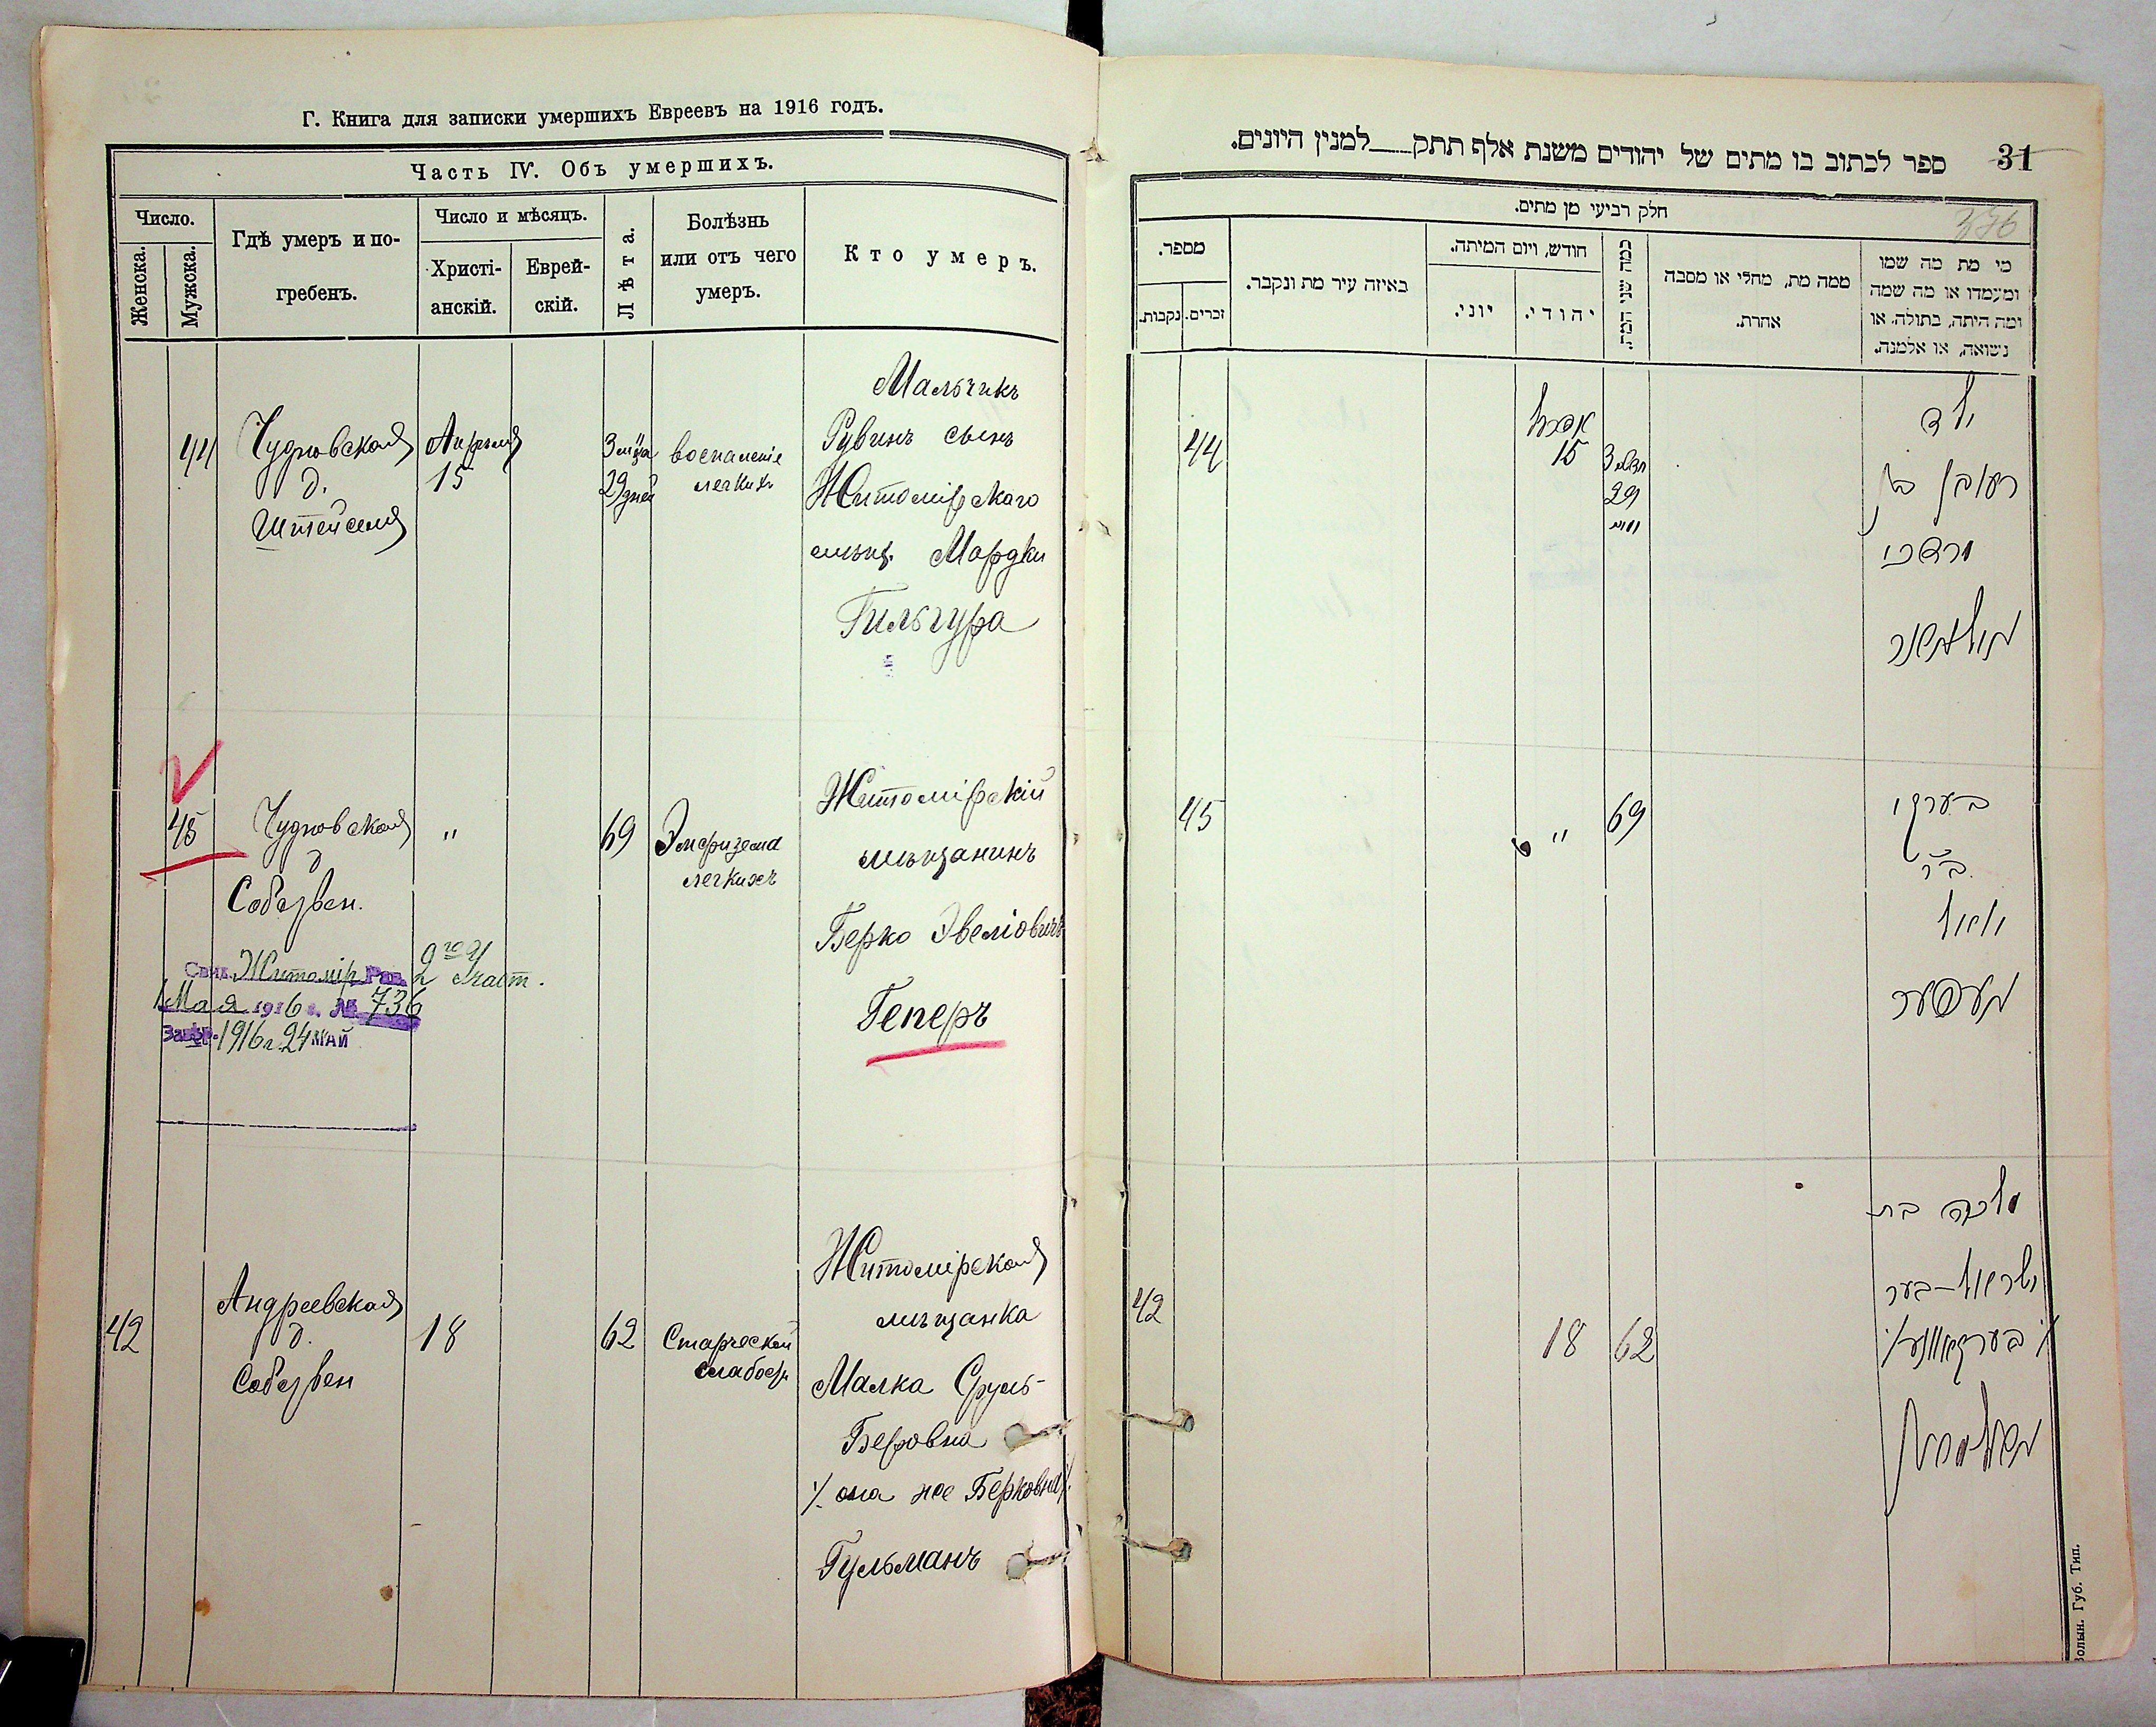 Г. Книга для записки умершихъ Евреевъ на 1916 годъ.
Часть IV. Объ умершихъ.
Число.
Женска.
Мужска.
Гдѣ умеръ и по-
гребенъ.
Число и мѣсяцъ.
Христі-
анскій.
Еврей-
скій.
Лѣта.
Болѣзнь
или отъ чего
умеръ.
Кто умеръ.
44
Чудновская
д.
Штейселя
Апрѣля
15
3 м-ца
29 дней
воспаленіе
легкихъ
Мальчикъ
Рувинъ сынъ
Житомірскаго
мѣщ. Мардки
Гильгура
45
Чудновская
д
Собствен.
"
69
Эмфизема
легкихъ
Житомірскій
мѣщанинъ
Берко Эвеліовичъ
Геперъ
Житомір Рав. 2го Участ.
1 Мая 1916 г. № 736
1916 г. 24 МАЙ
42
Андреевская
д.
Собствен
18
62
Старческой
слабости
Житомірская
мѣщанка
Малка Сруль-
Беровна
/. она же Берковна /.
Гульманъ
ספר לכתוב בו מתים של יהודים משנת אלף תתק למנין היונים.
31
חלק רביעי מן מתים.
מספר.
נקבות.
זכרים.
באיזה עיר מת ונקבר.
חודש, ויום המיתה.
יוני.
יהודי.
כמה שני המת.
ממה מת, מחלי או מסבה
אחרת.
מי מת מה שמו
ומעמדו או מה שמה
ומה היתה, בתולה, או
נשואה, או אלמנה.
44
אפריל
15
3
29
ילד
ראובן בן
מרדכי
45
"
69
בערקו
ב״ר
העפער
42
18
62
מלכה בת
ישראל-בער
Волын. Губ. Тип.